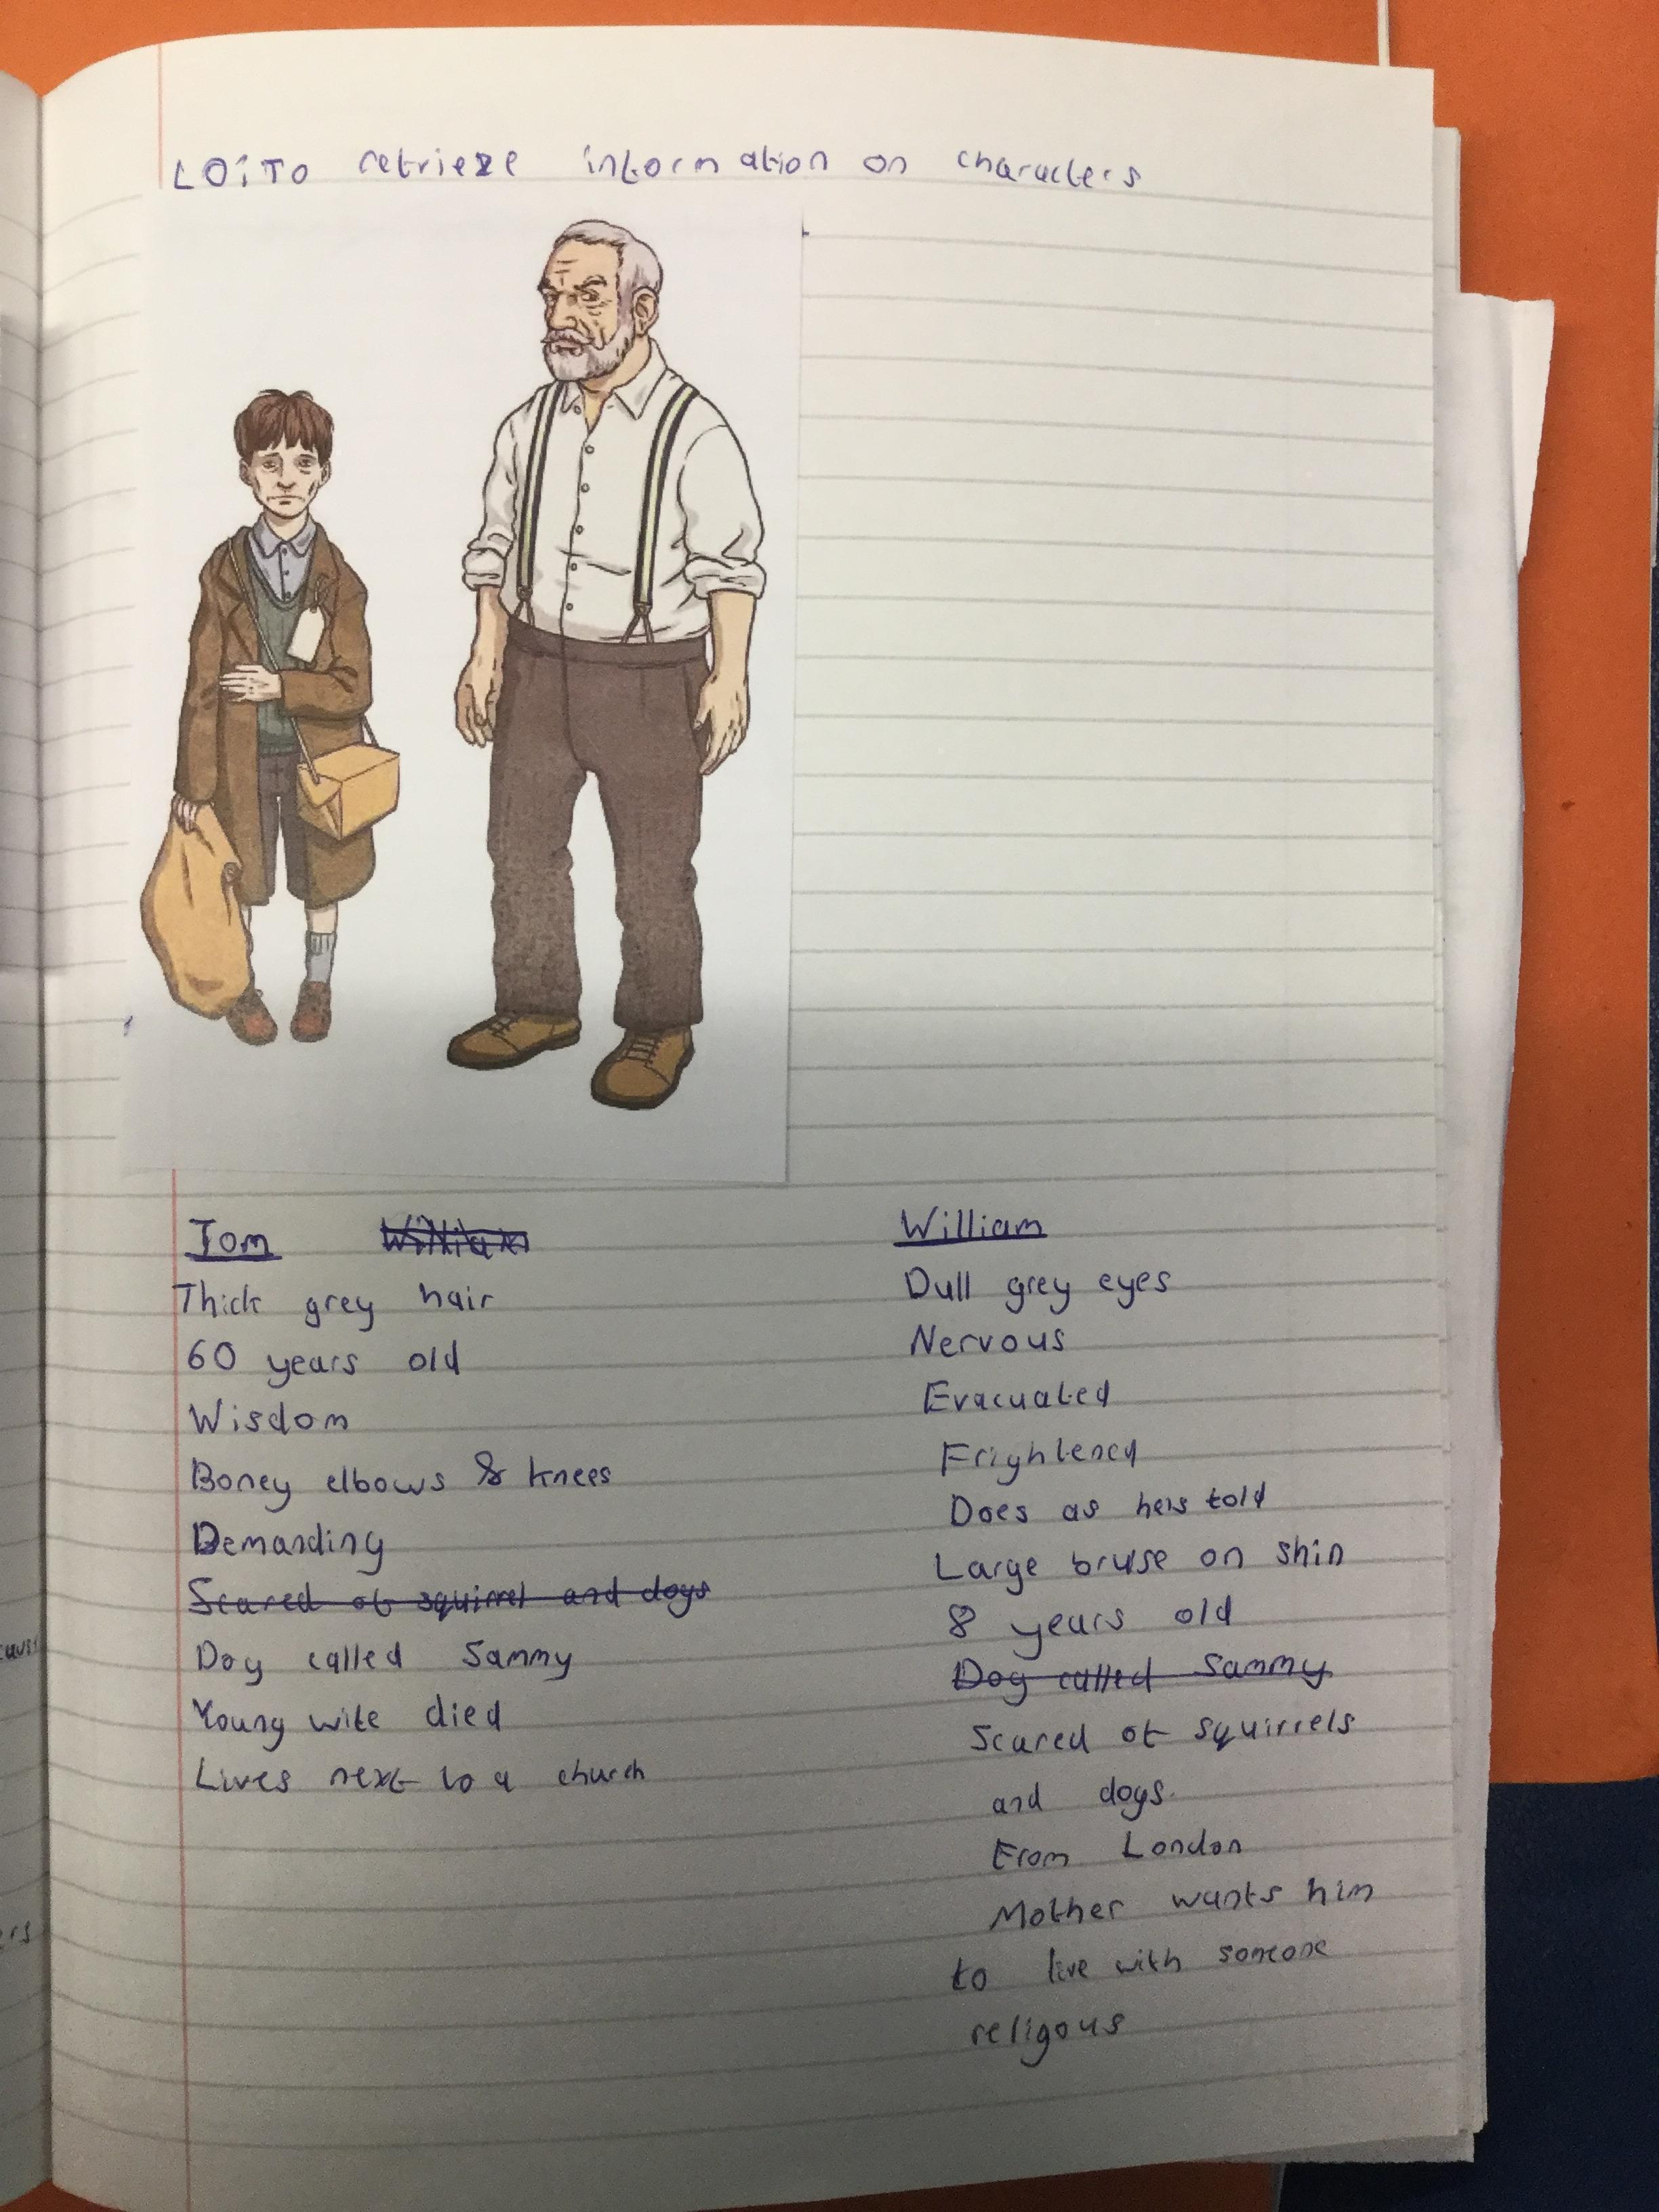 LO: To retrieve information on characters
Tom
Thick grey hair
60 years old
Wisdom
Boney elbows & knees
Demanding
Scared of squirrel and dogs
Dog called Sammy
Young wife died
Lives next to a church
William
William
Dull grey eyes
Nervous
Evacuated
Frightened
Does as he's told
Large bruise on shin
8 years old
Dog called Sammy
Scared of squirrels
and dogs.
From London
Mother wants him
to live with someone
religous